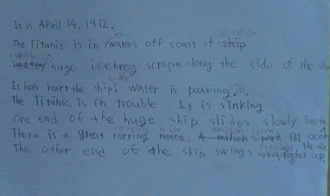 It is April 14, 1912.
The Titanic is in waters off coast of
huge iceberg scrape along the side of the
It has hurt the ship's water is pouring in.
The Titanic is in trouble. It is sinking.
One end of the huge ship slides slowly into
There is a great roaring noise. A million
The other end of the ship swings up